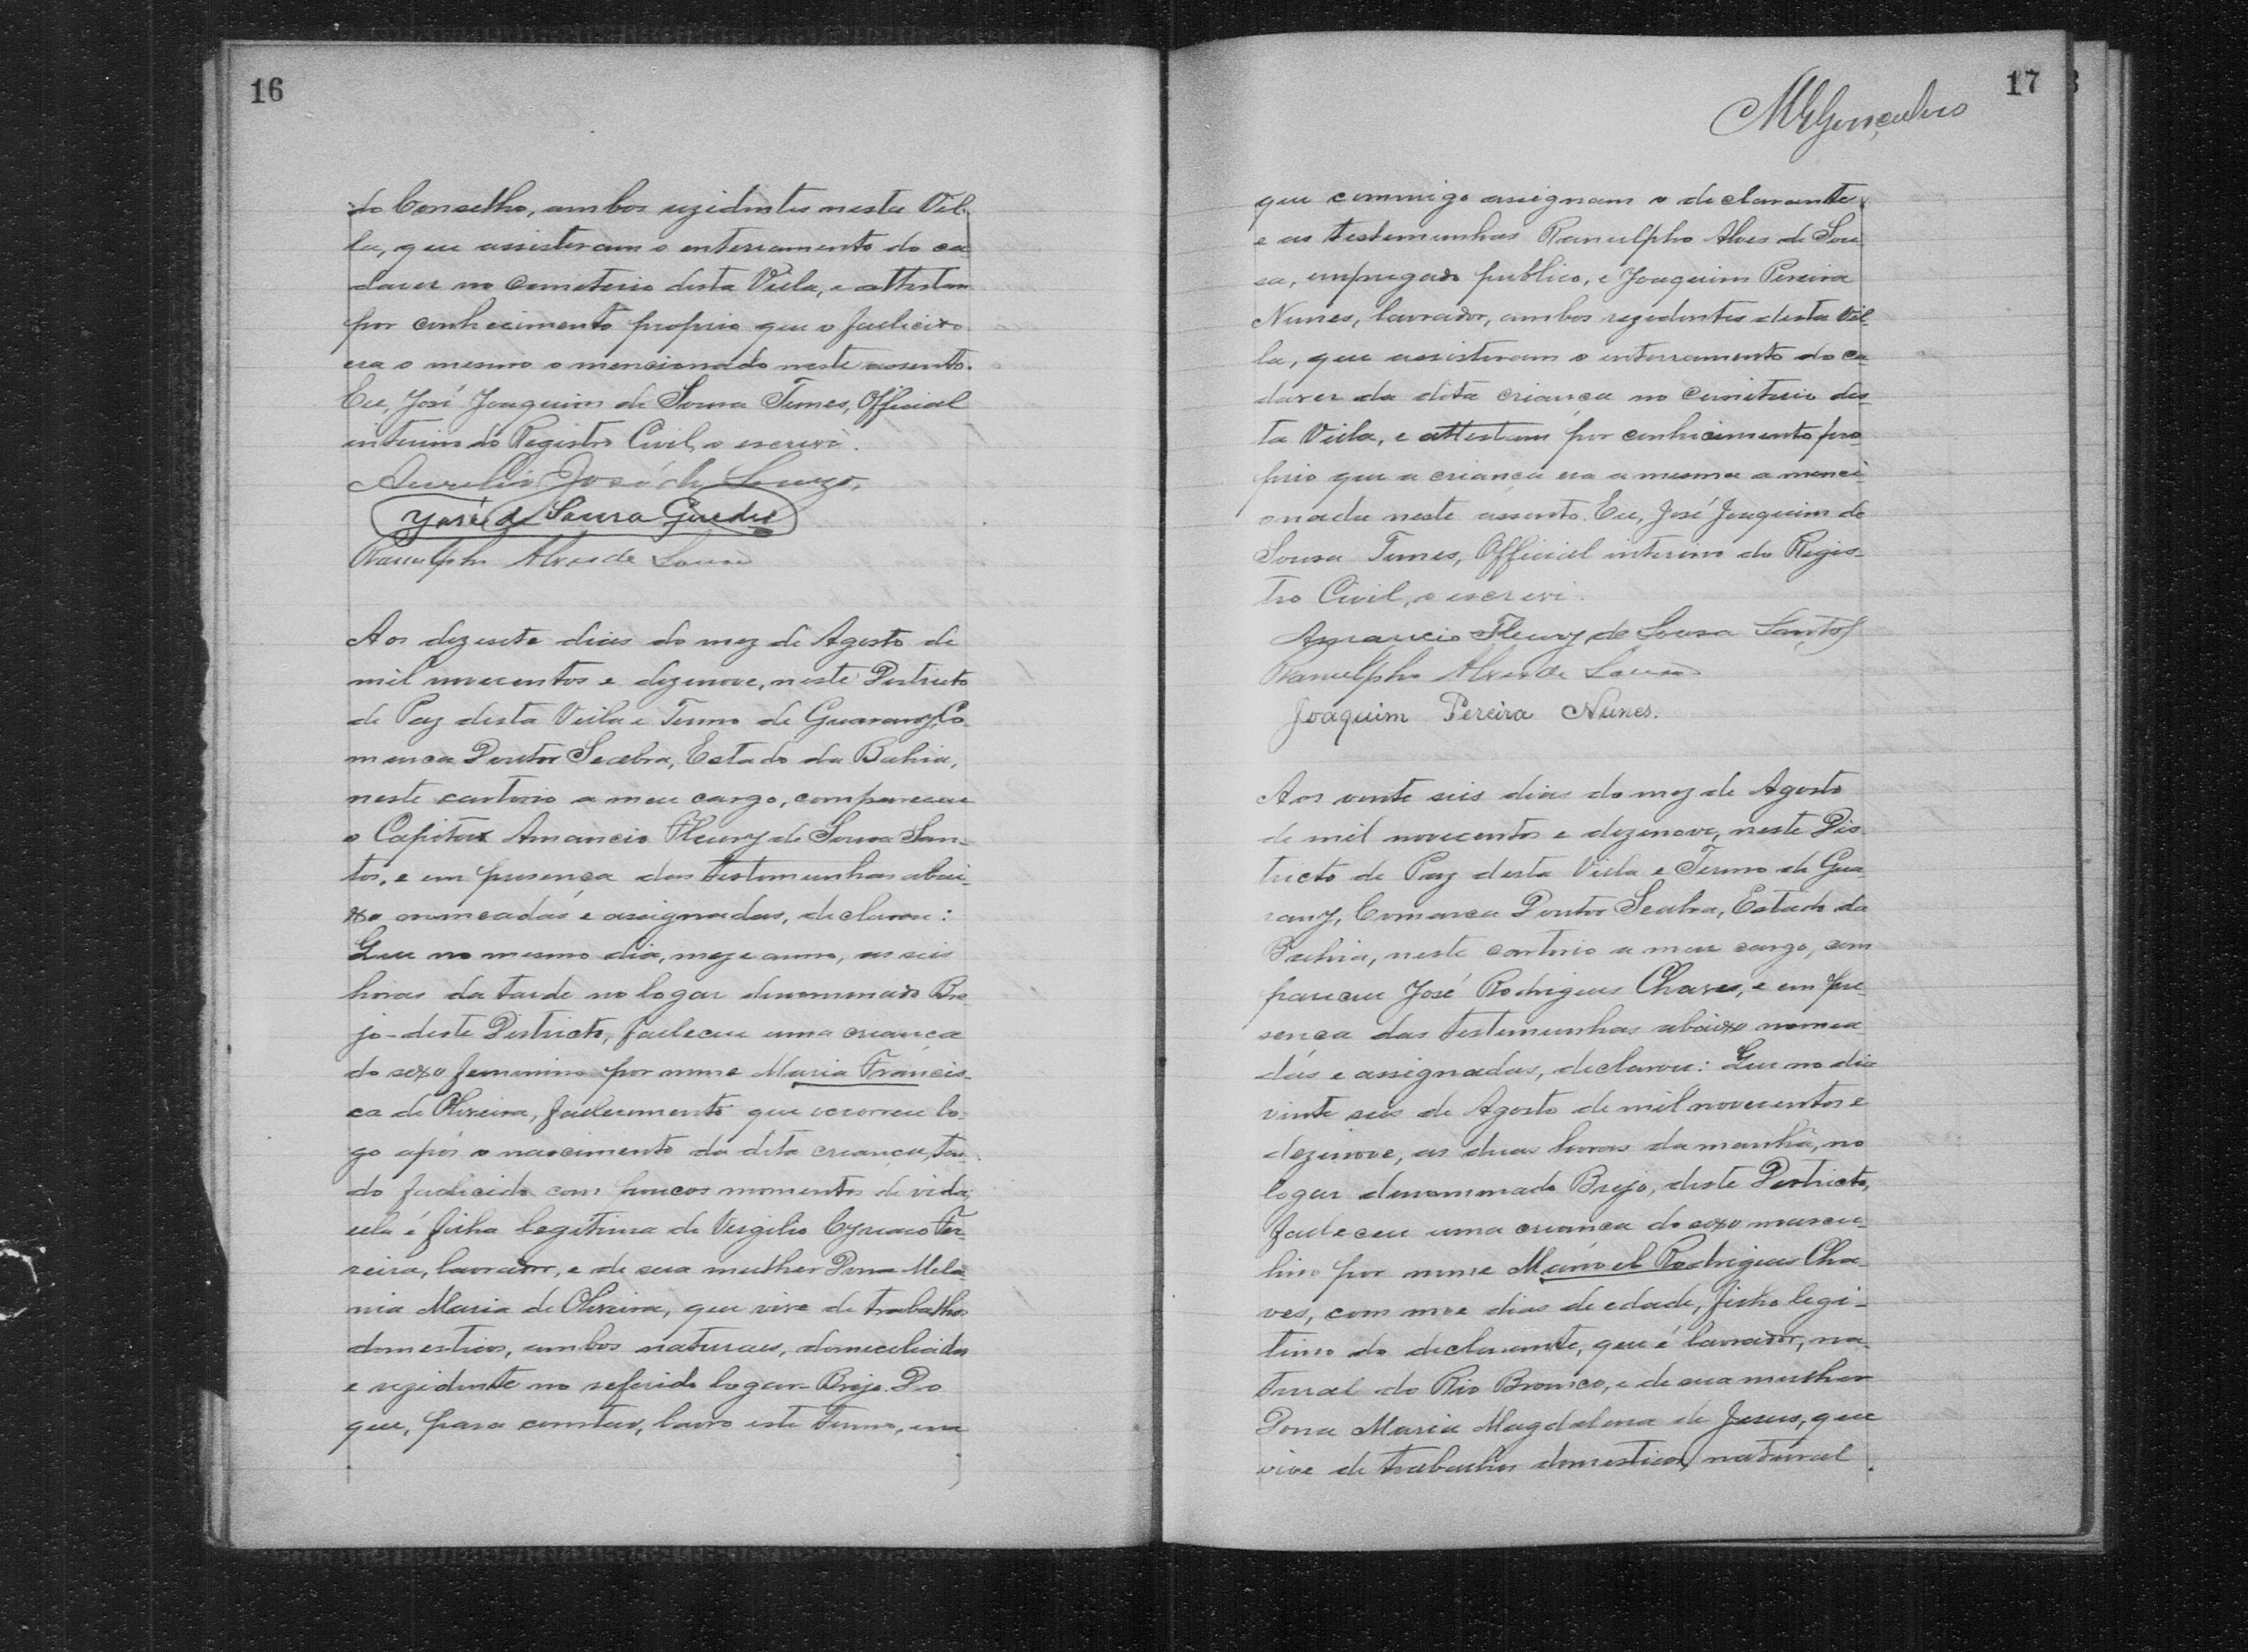 16
do Conselho, ambos rezidentes nesta Vil-
la, que assisteram o enterramento do ca-
daver no cemiterio desta Villa, e attestam
por conhecimento proprio que o fallecido
era o mesmo o mencionado neste assento.
Eu, José Joaquim de Sousa Tunes, Official
interino do Registro Civil, o escrevi.
Aurelio José de Souza,
José de Sousa Guedes
Ranulpho Alves de Sousa
Aos dezesete dias do mez de Agosto de
mil novecentos e dezenove, neste Districto
de Paz desta Villa e Termo de Guarany, Co-
marca Doutor Seabra, Estado da Bahia,
neste cartorio a meu cargo, compareceu
o Capitão Amancio Fleury de Sousa San-
tos, e em presença das testemunhas abai-
xo nomeadas e assignadas, declarou:
Que no mesmo dia, mez e anno, as seis
horas da tarde no logar denominado Bre
jo-deste Districto, falleceu uma criança
do sexo feminino por nome Maria Francis-
ca de Oliveira, fallecimento que ocorreu lo-
go após o nascimento da dita criança, ten-
do fallecido com poucos momentos de vida;
ella é filha legitima de Virgilio Cyriaco Fer-
reira, lavrador, e de sua mulher Dona Mela-
nia Maria de Oliveira, que vive de trabalhos
domesticos, ambos naturaes, domeciliados
e rezidente no referido logar-Brejo. Do
que, para constar, lavro este Termo, em
17
MGGonçalves
que commigo assignam o declarante
e as testemunhas Ranulpho Alves de Sou-
sa, empregado publico, e Joaquim Pereira
Nunes, lavrador, ambos rezidentes desta Vil-
la, que assisteram o enterramento do ca
daver da dita criança no cemiterio des-
ta Villa, e attestam por conhecimento pro-
prio que a criança era a mesma a menci
onada neste assento. Eu, José Joaquim de
Sousa Tunes, Official interino do Regis-
tro Civil, o escrevi.
Amancio Fleury de Sousa Santos
Ranulpho Alves de Sousa
Joaquim Pereira Nunes.
Aos vinte seis dias do mez de Agosto
de mil novecentos e dezenove, neste Dis-
tricto de Paz desta Villa e Termo de Gua-
rany, Comarca Doutor Seabra, Estado da
Bahia, neste cartorio a meu cargo, com
pareceu José Rodrigues Chaves, e em pre-
sença das testemunhas abaixo nomea
das e assignadas, declarou: Que no dia
vinte seis de Agosto de mil novecentos e
dezenove, as duas horas da manhã, no
logar denominado Brejo, deste Districto,
falleceu uma criança do sexo mascu-
lino por nome Manoel Rodrigues Cha-
ves, com nove dias de edade, filho legi-
timo do declarante, que é lavrador, na-
tural do Rio Branco, e de sua mulher
Dona Maria Magdalena de Jesus, que
vive de trabalhos domesticos, natural